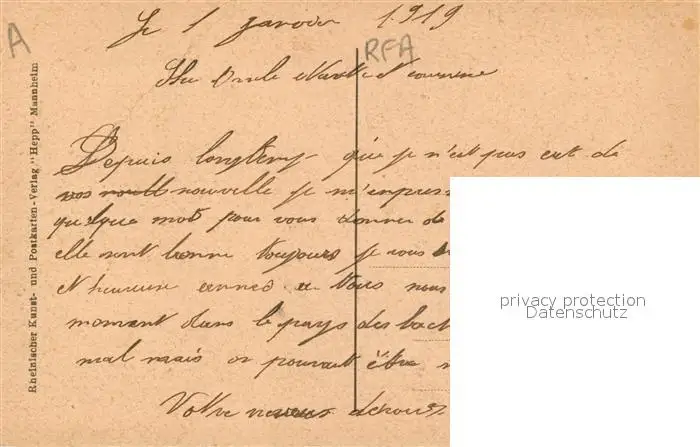 Le 1 janvier 1919
A
RFA
Cher Oncle et Tante et cousine
Depuis longtemp que je n'est pas eut de
vos nouvelle je m'empres
quelque mot pour vous donner de
elle sont bonne toujours je vous
et heureuse année a tous nous
moment dans le pays des boch
mal mais on pourrait être
Votre neveux
Rheinischer Kunst- und Postkarten-Verlag "Hepp" Mannheim
privacy protection
Datenschutz